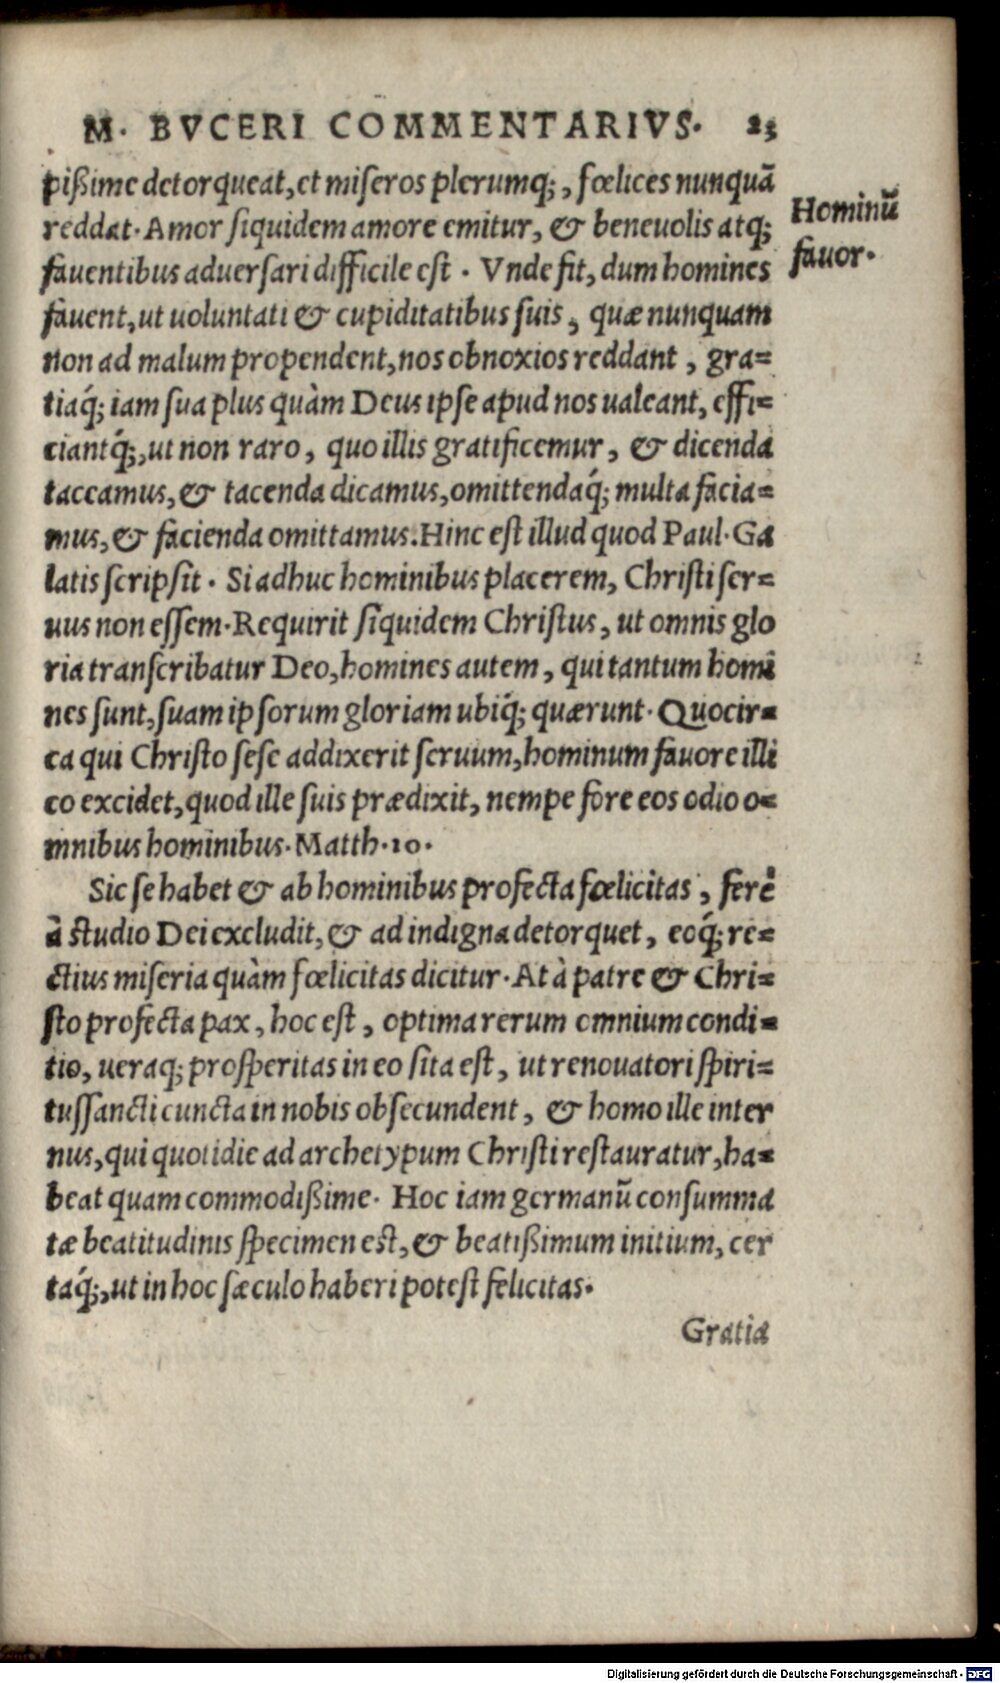 M. BVCERI COMMENTARIVS. 25
pißime detorqueat, et miseros plerumq;, fœlices nunquā
reddat. Amor siquidem amore emitur, & beneuolis atq;
fauentibus aduersari difficile est. Vnde fit, dum homines
fauent, ut uoluntati & cupiditatibus suis, quæ nunquam
non ad malum propendent, nos obnoxios reddant, gra=
tiaq́; iam sua plus quàm Deus ipse apud nos ualeant, effi=
ciantq́;, ut non raro, quo illis gratificemur, & dicenda
taceamus, & tacenda dicamus, omittendaq́; multa facia=
mus, & facienda omittamus. Hinc est illud quod Paul. Ga
latis scripsit. Si adhuc hominibus placerem, Christi ser=
uus non essem. Requirit siquidem Christus, ut omnis glo
ria transcribatur Deo, homines autem, qui tantum homi
nes sunt, suam ipsorum gloriam ubiq́; quærunt. Quocir=
ca qui Christo sese addixerit seruum, hominum fauore illi
co excidet, quod ille suis prædixit, nempe fore eos odio o=
mnibus hominibus. Matth. 10.
Sic se habet & ab hominibus profecta fœlicitas, ferè
à studio Dei excludit, & ad indigna detorquet, eoq́; re=
ctius miseria quàm fœlicitas dicitur. At à patre & Chri=
sto profecta pax, hoc est, optima rerum omnium condi=
tio, ueraq; prosperitas in eo sita est, ut renouatori spiri=
tussancti cuncta in nobis obsecundent, & homo ille inter
nus, qui quotidie ad archetypum Christi restauratur, ha=
beat quam commodißime. Hoc iam germanū consumma
tæ beatitudinis specimen est, & beatißimum initium, cer
taq́;, ut in hoc sæculo haberi potest felicitas.
Gratia
Hominū
fauor.
Digitalisierung gefördert durch die Deutsche Forschungsgemeinschaft - DFG